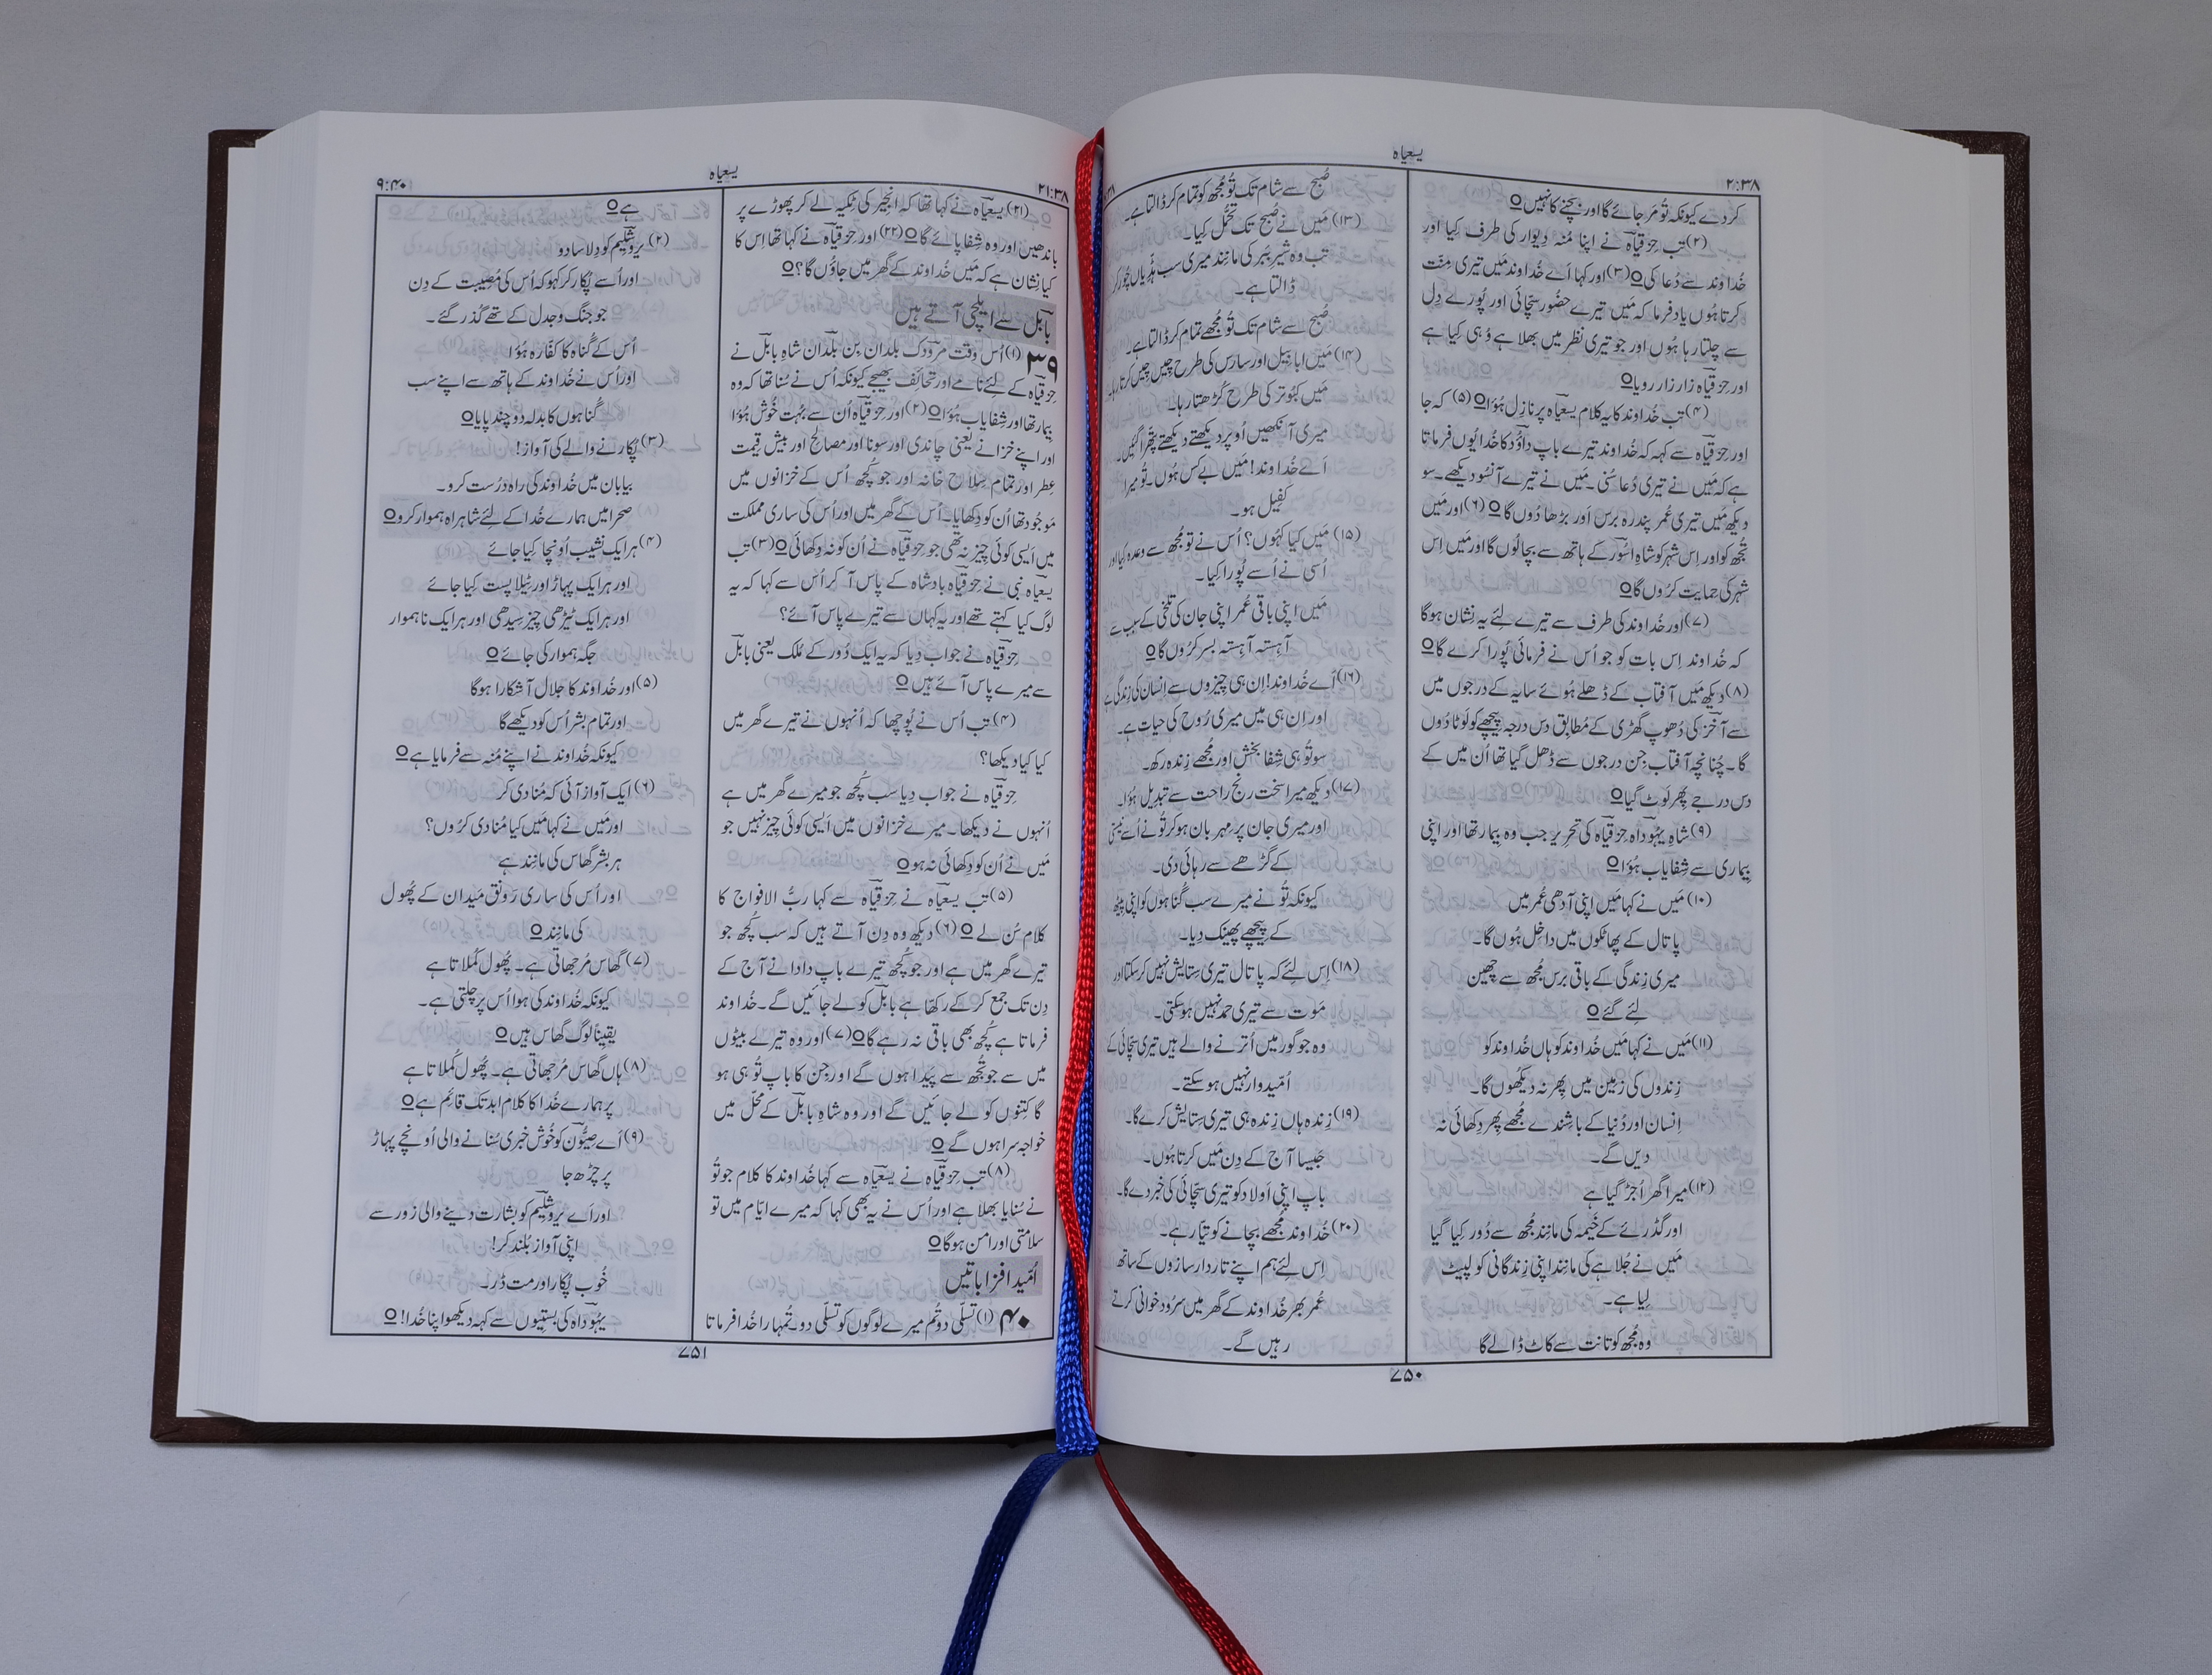 یسعیاہ
۲:۳۸
کر دے کیونکہ تُو مَر جائے گا اور بچنے کا نہیں O
(۲) تب حِزقیاہ نے اپنا مُنہ دِیوار کی طرف کِیا اور
خُداوند سے دُعا کی O (۳) اور کہا اَے خُداوند مَیں تیری مِنّت
کرتا ہُوں یاد فرما کہ مَیں تیرے حضُور سچّائی اور پُورے دِل
سے چلتا رہا ہُوں اور جو تیری نظر میں بھلا ہے وُہی کِیا ہے
اور حِزقیاہ زار زار رویا O
(۴) تب خُداوند کا یہ کلام یسعیاہ پر نازِل ہُؤا O (۵) کہ جا
اور حِزقیاہ سے کہہ کہ خُداوند تیرے باپ داؤُد کا خُدا یُوں فرماتا
ہے کہ مَیں نے تیری دُعا سُنی۔ مَیں نے تیرے آنسُو دیکھے۔ سو
دیکھ مَیں تیری عُمر پندرہ برس اَور بڑھا دُوں گا O (۶) اور مَیں
تُجھ کو اور اِس شہر کو شاہِ اسُور کے ہاتھ سے بچا لُوں گا اور مَیں اِس
شہر کی حمایت کرُوں گا O
(۷) اور خُداوند کی طرف سے تیرے لِئے یہ نِشان ہوگا
کہ خُداوند اِس بات کو جو اُس نے فرمائی پُورا کرے گا O
(۸) دیکھ مَیں آفتاب کے ڈھلے ہُوئے سایہ کے درجوں میں
سے آخز کی دُھوپ گھڑی کے مُطابق دس درجہ پِیچھے کو لَوٹا دُوں
گا۔ چُنانچہ آفتاب جِن درجوں سے ڈھل گیا تھا اُن میں کے
دس درجے پِھر لَوٹ گیا O
(۹) شاہِ یہُوداہ حِزقیاہ کی تحریر جب وہ بِیمار تھا اور اپنی
بِیماری سے شِفایاب ہُؤا O
(۱۰) مَیں نے کہا مَیں اپنی آدھی عُمر میں
پاتال کے پھاٹکوں میں داخِل ہُوں گا۔
میری زِندگی کے باقی برس مُجھ سے چِھین
لِئے گئے O
(۱۱) مَیں نے کہا مَیں خُداوند کو ہاں خُداوند کو
زِندوں کی زمِین میں پِھر نہ دیکُھوں گا۔
اِنسان اور دُنیا کے باشِندے مُجھے پِھر دِکھائی نہ
دیں گے۔
(۱۲) میرا گھر اُجڑ گیا ہے
اور گڈرِئے کے خَیمہ کی مانِند مُجھ سے دُور کِیا گیا
مَیں نے جُلاہے کی مانِند اپنی زِندگانی کو لپیٹ
لِیا ہے۔
وہ مُجھ کو تانت سے کاٹ ڈالے گا
صُبح سے شام تک تُو مُجھ کو تمام کر ڈالتا ہے۔
(۱۳) مَیں نے صُبح تک تحمُّل کِیا۔
تب وہ شیرِ بَبر کی مانِند میری سب ہڈِّیاں چُور کر
ڈالتا ہے۔
صُبح سے شام تک تُو مُجھے تمام کر ڈالتا ہے۔
(۱۴) مَیں ابابِیل اور سارس کی طرح چِیں چِیں کرتا رہا۔
مَیں کبُوتر کی طرح کُڑھتا رہا۔
میری آنکھیں اُوپر دیکھتے دیکھتے پتّھرا گئِیں۔
اَے خُداوند! مَیں بے کس ہُوں۔ تُو میرا
کفِیل ہو۔
(۱۵) مَیں کیا کہُوں؟ اُس نے تو مُجھ سے وعدہ کِیا اور
اُسی نے اُسے پُورا کِیا۔
مَیں اپنی باقی عُمر اپنی جان کی تلخی کے سبب سے
آہِستہ آہِستہ بسر کرُوں گا O
(۱۶) اَے خُداوند! اِن ہی چیزوں سے اِنسان کی زِندگی ہے
اور اِن ہی میں میری رُوح کی حیات ہے۔
سو تُو ہی شِفا بخش اور مُجھے زِندہ رکھ۔
(۱۷) دیکھ میرا سخت رنج راحت سے تبدِیل ہُؤا۔
اور میری جان پر مہربان ہو کر تُو نے اُسے نیستی
کے گڑھے سے رہائی دی۔
کیونکہ تُو نے میرے سب گُناہوں کو اپنی پِیٹھ
کے پِیچھے پھینک دِیا۔
(۱۸) اِس لِئے کہ پاتال تیری سِتایش نہیں کر سکتا اور
مَوت سے تیری حمد نہیں ہو سکتی۔
وہ جو گور میں اُترنے والے ہیں تیری سچّائی کے
اُمّیدوار نہیں ہو سکتے۔
(۱۹) زِندہ ہاں زِندہ ہی تیری سِتایش کرے گا۔
جَیسا آج کے دِن مَیں کرتا ہُوں۔
باپ اپنی اَولاد کو تیری سچّائی کی خبر دے گا۔
(۲۰) خُداوند مُجھے بچانے کو تیّار ہے۔
اِس لِئے ہم اپنے تاردار سازوں کے ساتھ
عُمر بھر خُداوند کے گھر میں سرُود خوانی کرتے
رہیں گے۔
۷۵۰
۲۱:۳۸
یسعیاہ
۹:۴۰
(۲۱) یسعیاہ نے کہا تھا کہ انجِیر کی ٹِکیہ لے کر پھوڑے پر
باندھیں اور وہ شِفا پائے گا O (۲۲) اور حِزقیاہ نے کہا تھا اِس کا
کیا نِشان ہے کہ مَیں خُداوند کے گھر میں جاؤُں گا؟ O
بابل سے ایلچی آتے ہیں
۳۹ (۱) اُس وقت مرُودک بلدان بِن بلدان شاہِ بابل نے
حِزقیاہ کے لِئے نامے اور تحائف بھیجے کیونکہ اُس نے سُنا تھا کہ وہ
بِیمار تھا اور شِفایاب ہُؤا O (۲) اور حِزقیاہ اُن سے بُہت خُوش ہُؤا
اور اپنے خزانے یعنی چاندی اور سونا اور مصالِح اور بیش قِیمت
عِطر اور تمام سِلاح خانہ اور جو کُچھ اُس کے خزانوں میں
مَوجُود تھا اُن کو دِکھایا۔ اُس کے گھر میں اور اُس کی ساری مملکت
میں اَیسی کوئی چِیز نہ تھی جو حِزقیاہ نے اُن کو نہ دِکھائی O (۳) تب
یسعیاہ نبی نے حِزقیاہ بادشاہ کے پاس آ کر اُس سے کہا کہ یہ
لوگ کیا کہتے تھے اور یہ کہاں سے تیرے پاس آئے؟
حِزقیاہ نے جواب دِیا کہ یہ ایک دُور کے مُلک یعنی بابل
سے میرے پاس آئے ہیں O
(۴) تب اُس نے پُوچھا کہ اُنہوں نے تیرے گھر میں
کیا کیا دیکھا؟
حِزقیاہ نے جواب دِیا سب کُچھ جو میرے گھر میں ہے
اُنہوں نے دیکھا۔ میرے خزانوں میں اَیسی کوئی چِیز نہیں جو
مَیں نے اُن کو دِکھائی نہ ہو O
(۵) تب یسعیاہ نے حِزقیاہ سے کہا ربُّ الافواج کا
کلام سُن لے O (۶) دیکھ وہ دِن آتے ہیں کہ سب کُچھ جو
تیرے گھر میں ہے اور جو کُچھ تیرے باپ دادا نے آج کے
دِن تک جمع کر کے رکھّا ہے بابل کو لے جائیں گے۔ خُداوند
فرماتا ہے کُچھ بھی باقی نہ رہے گا O (۷) اور وہ تیرے بیٹوں
میں سے جو تُجھ سے پَیدا ہوں گے اور جِن کا باپ تُو ہی ہو
گا کِتنوں کو لے جائیں گے اور وہ شاہِ بابل کے محلّ میں
خواجہ سرا ہوں گے O
(۸) تب حِزقیاہ نے یسعیاہ سے کہا خُداوند کا کلام جو تُو
نے سُنایا بھلا ہے اور اُس نے یہ بھی کہا کہ میرے ایّام میں تو
سلامتی اور امن ہوگا O
اُمّید افزا باتیں
۴۰ (۱) تسلّی دو تُم میرے لوگوں کو تسلّی دو۔ تُمہارا خُدا فرماتا
ہے O
(۲) یروشلیم کو دِلاسا دو
اور اُسے پُکار کر کہو کہ اُس کی مُصِیبت کے دِن
جو جنگ و جدل کے تھے گُذر گئے۔
اُس کے گُناہ کا کفّارہ ہُؤا
اور اُس نے خُداوند کے ہاتھ سے اپنے سب
گُناہوں کا بدلہ دو چند پایا O
(۳) پُکارنے والے کی آواز!
بیابان میں خُداوند کی راہ درُست کرو۔
صحرا میں ہمارے خُدا کے لِئے شاہراہ ہموار کرو O
(۴) ہر ایک نشیب اُونچا کِیا جائے
اور ہر ایک پہاڑ اور ٹِیلا پست کِیا جائے
اور ہر ایک ٹیڑھی چِیز سِیدھی اور ہر ایک ناہموار
جگہ ہموار کی جائے O
(۵) اور خُداوند کا جلال آشکارا ہوگا
اور تمام بشر اُس کو دیکھے گا
کیونکہ خُداوند نے اپنے مُنہ سے فرمایا ہے O
(۶) ایک آواز آئی کہ مُنادی کر
اور مَیں نے کہا مَیں کیا مُنادی کرُوں؟
ہر بشر گھاس کی مانِند ہے
اور اُس کی ساری رَونق مَیدان کے پُھول
کی مانِند O
(۷) گھاس مُرجھاتی ہے۔ پُھول کُملاتا ہے
کیونکہ خُداوند کی ہوا اُس پر چلتی ہے۔
یقِیناً لوگ گھاس ہیں O
(۸) ہاں گھاس مُرجھاتی ہے۔ پُھول کُملاتا ہے
پر ہمارے خُدا کا کلام ابد تک قائِم ہے O
(۹) اَے صِیُّون کو خُوش خبری سُنانے والی اُونچے پہاڑ
پر چڑھ جا
اور اَے یروشلیم کو بشارت دینے والی زور سے
اپنی آواز بُلند کر!
خُوب پُکار اور مت ڈر۔
یہُوداہ کی بستِیوں سے کہہ دیکھو اپنا خُدا! O
۷۵۱